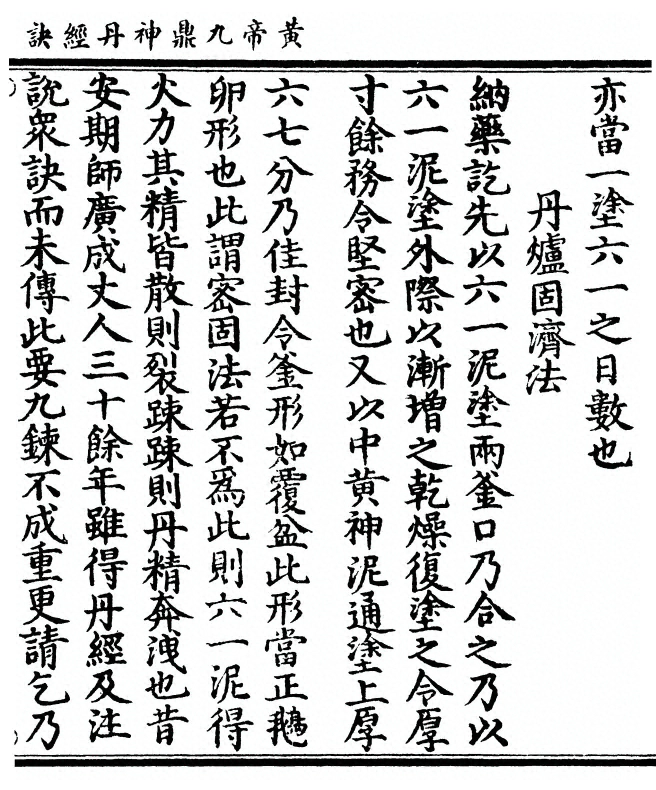 黃帝九鼎神丹經訣
亦當一塗六一之日數也
丹爐固濟法
納藥訖先以六一泥塗兩釜口乃合之乃以
六一泥塗外際以漸增之乾燥復塗之令厚
寸餘務令堅密也又以中黃神泥通塗上厚
六七分乃佳封令釜形如覆盆此形當正鵝
卵形也此謂密固法若不爲此則六一泥得
火力其精皆散則裂踈踈則丹精奔洩也昔
安期師廣成丈人三十餘年雖得丹經及注
說衆訣而未傳此要九鍊不成重更請乞乃